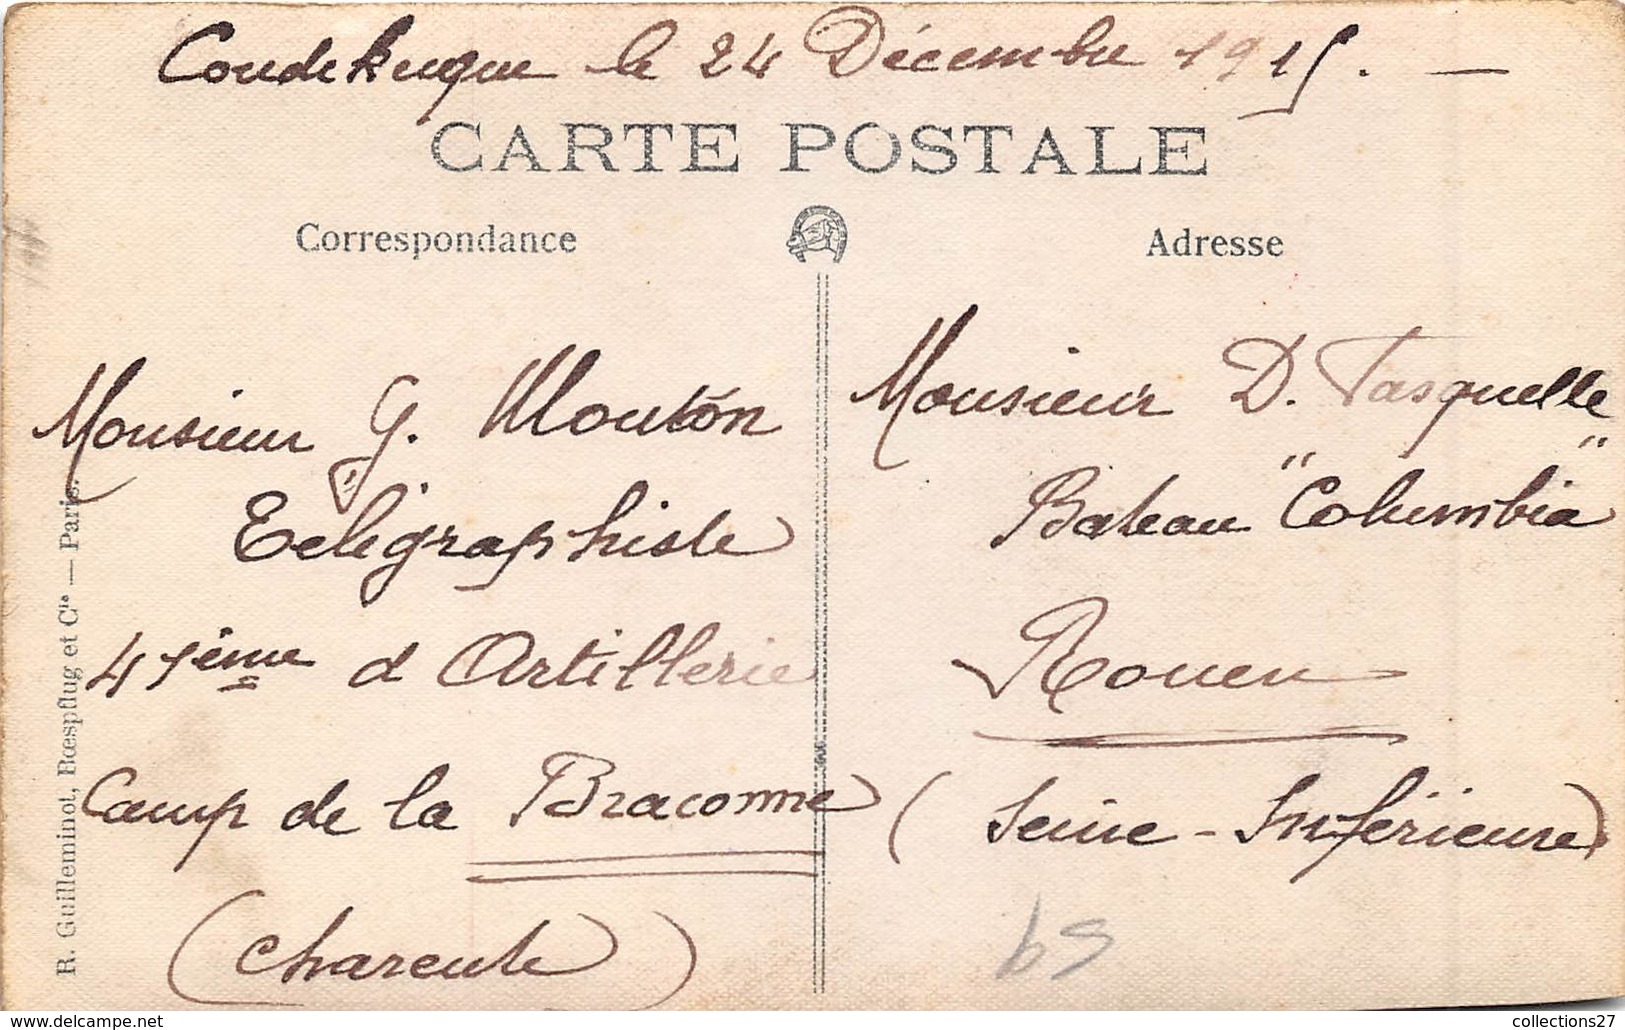 Coudekerque le 24 Décembre 1915. —
CARTE POSTALE
Correspondance
Adresse
Monsieur G. Moutón
Télégraphiste
41ème d Artillerie
Camp de la Braconne
(Charente)
Monsieur D. Fasquelle
Bateau "Columbia"
Rouen
(Seine-Inférieure)
R. Guilleminot, Bœspflug et Cie — Paris.
collections27